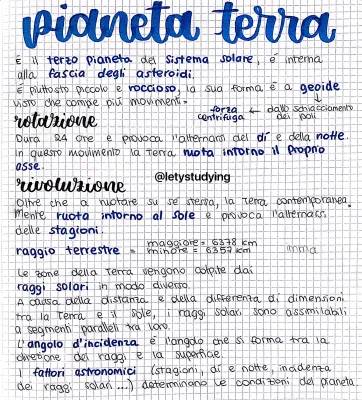 pianeta terra
È il terzo pianeta del sistema solare, è interna
alla fascia degli asteroidi.
È piuttosto piccolo e roccioso, la sua forma è a geoide
visto che compie più movimenti.
forza centrifuga ← dallo schiacciamento dei poli
rotazione
Dura 24 ore e provoca l'alternarsi del dì e della notte.
In questo movimento la Terra ruota intorno il proprio
asse.
@letystudying
rivoluzione
Oltre che a ruotare su se stessa, la Terra contemporanea.
mente ruota intorno al Sole e provoca l'alternarsi
delle stagioni.
raggio terrestre = maggiore = 6378 km
minore = 6357 km
Le zone della Terra vengono colpite dai
raggi solari in modo diverso.
A causa della distanza e della differenza di dimensioni
tra la Terra e il Sole, i raggi solari sono assimilabili
a segmenti paralleli tra loro.
L'angolo d'incidenza è l'angolo che si forma tra la
direzione dei raggi e la superficie.
I fattori astronomici (stagioni, dì e notte, incidenza
dei raggi solari...) determinano le condizioni del pianeta